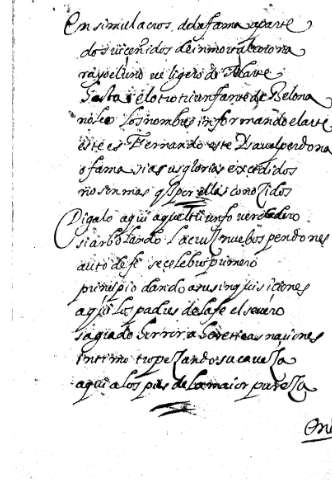 en simulacros, de la fama aparte
dos vi ceñidos de inmortal corona
rayo el uno vi ligero de Marte
Gasta i el otro triunfante de Belona
no leo los nombres informando el arte
este es Fernando este Davalos perdona
o fama si a sus glorias excedidos
no son mas q̃ por ellas conocidos
Digalo aqui aquel triunfo verdadero
si arbolando la cruz nuebos pendones
auto de fe se celebro primero
principio dando a sus inquisiciones
aqui los padres de la fe el severo
sagrado horror a hereticas naciones
intimo tropezando su caveza
aqui a los pies de la maior pureza